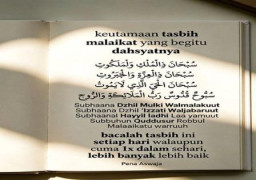 keutamaan tasbih
malaikat yang begitu
dahsyatnya
سُبْحَانَ ذِى الْمُلْكِ وَالْمَلَكُوْتِ
سُبْحَانَ ذِى الْعِزَّةِ وَالْجَبَرُوْتِ
سُبْحَانَ الْحَيِّ الَّذِيْ لَا يَمُوْتُ
سُبُّوْحٌ قُدُّوْسٌ رَبُّ الْمَلَائِكَةِ وَالرُّوْحِ
Subhaana Dzhil Mulki Walmalakuut
Subhaana Dzhil 'Izzati Waljabaruut
Subhaanal Hayyil ladhi Laa yamuut
Subbuhun Quddusur Robbul
Malaaikatu warruuh
bacalah tasbih ini
setiap hari walaupun
cuma 1x dalam sehari,
lebih banyak lebih baik
Pena Aswaja